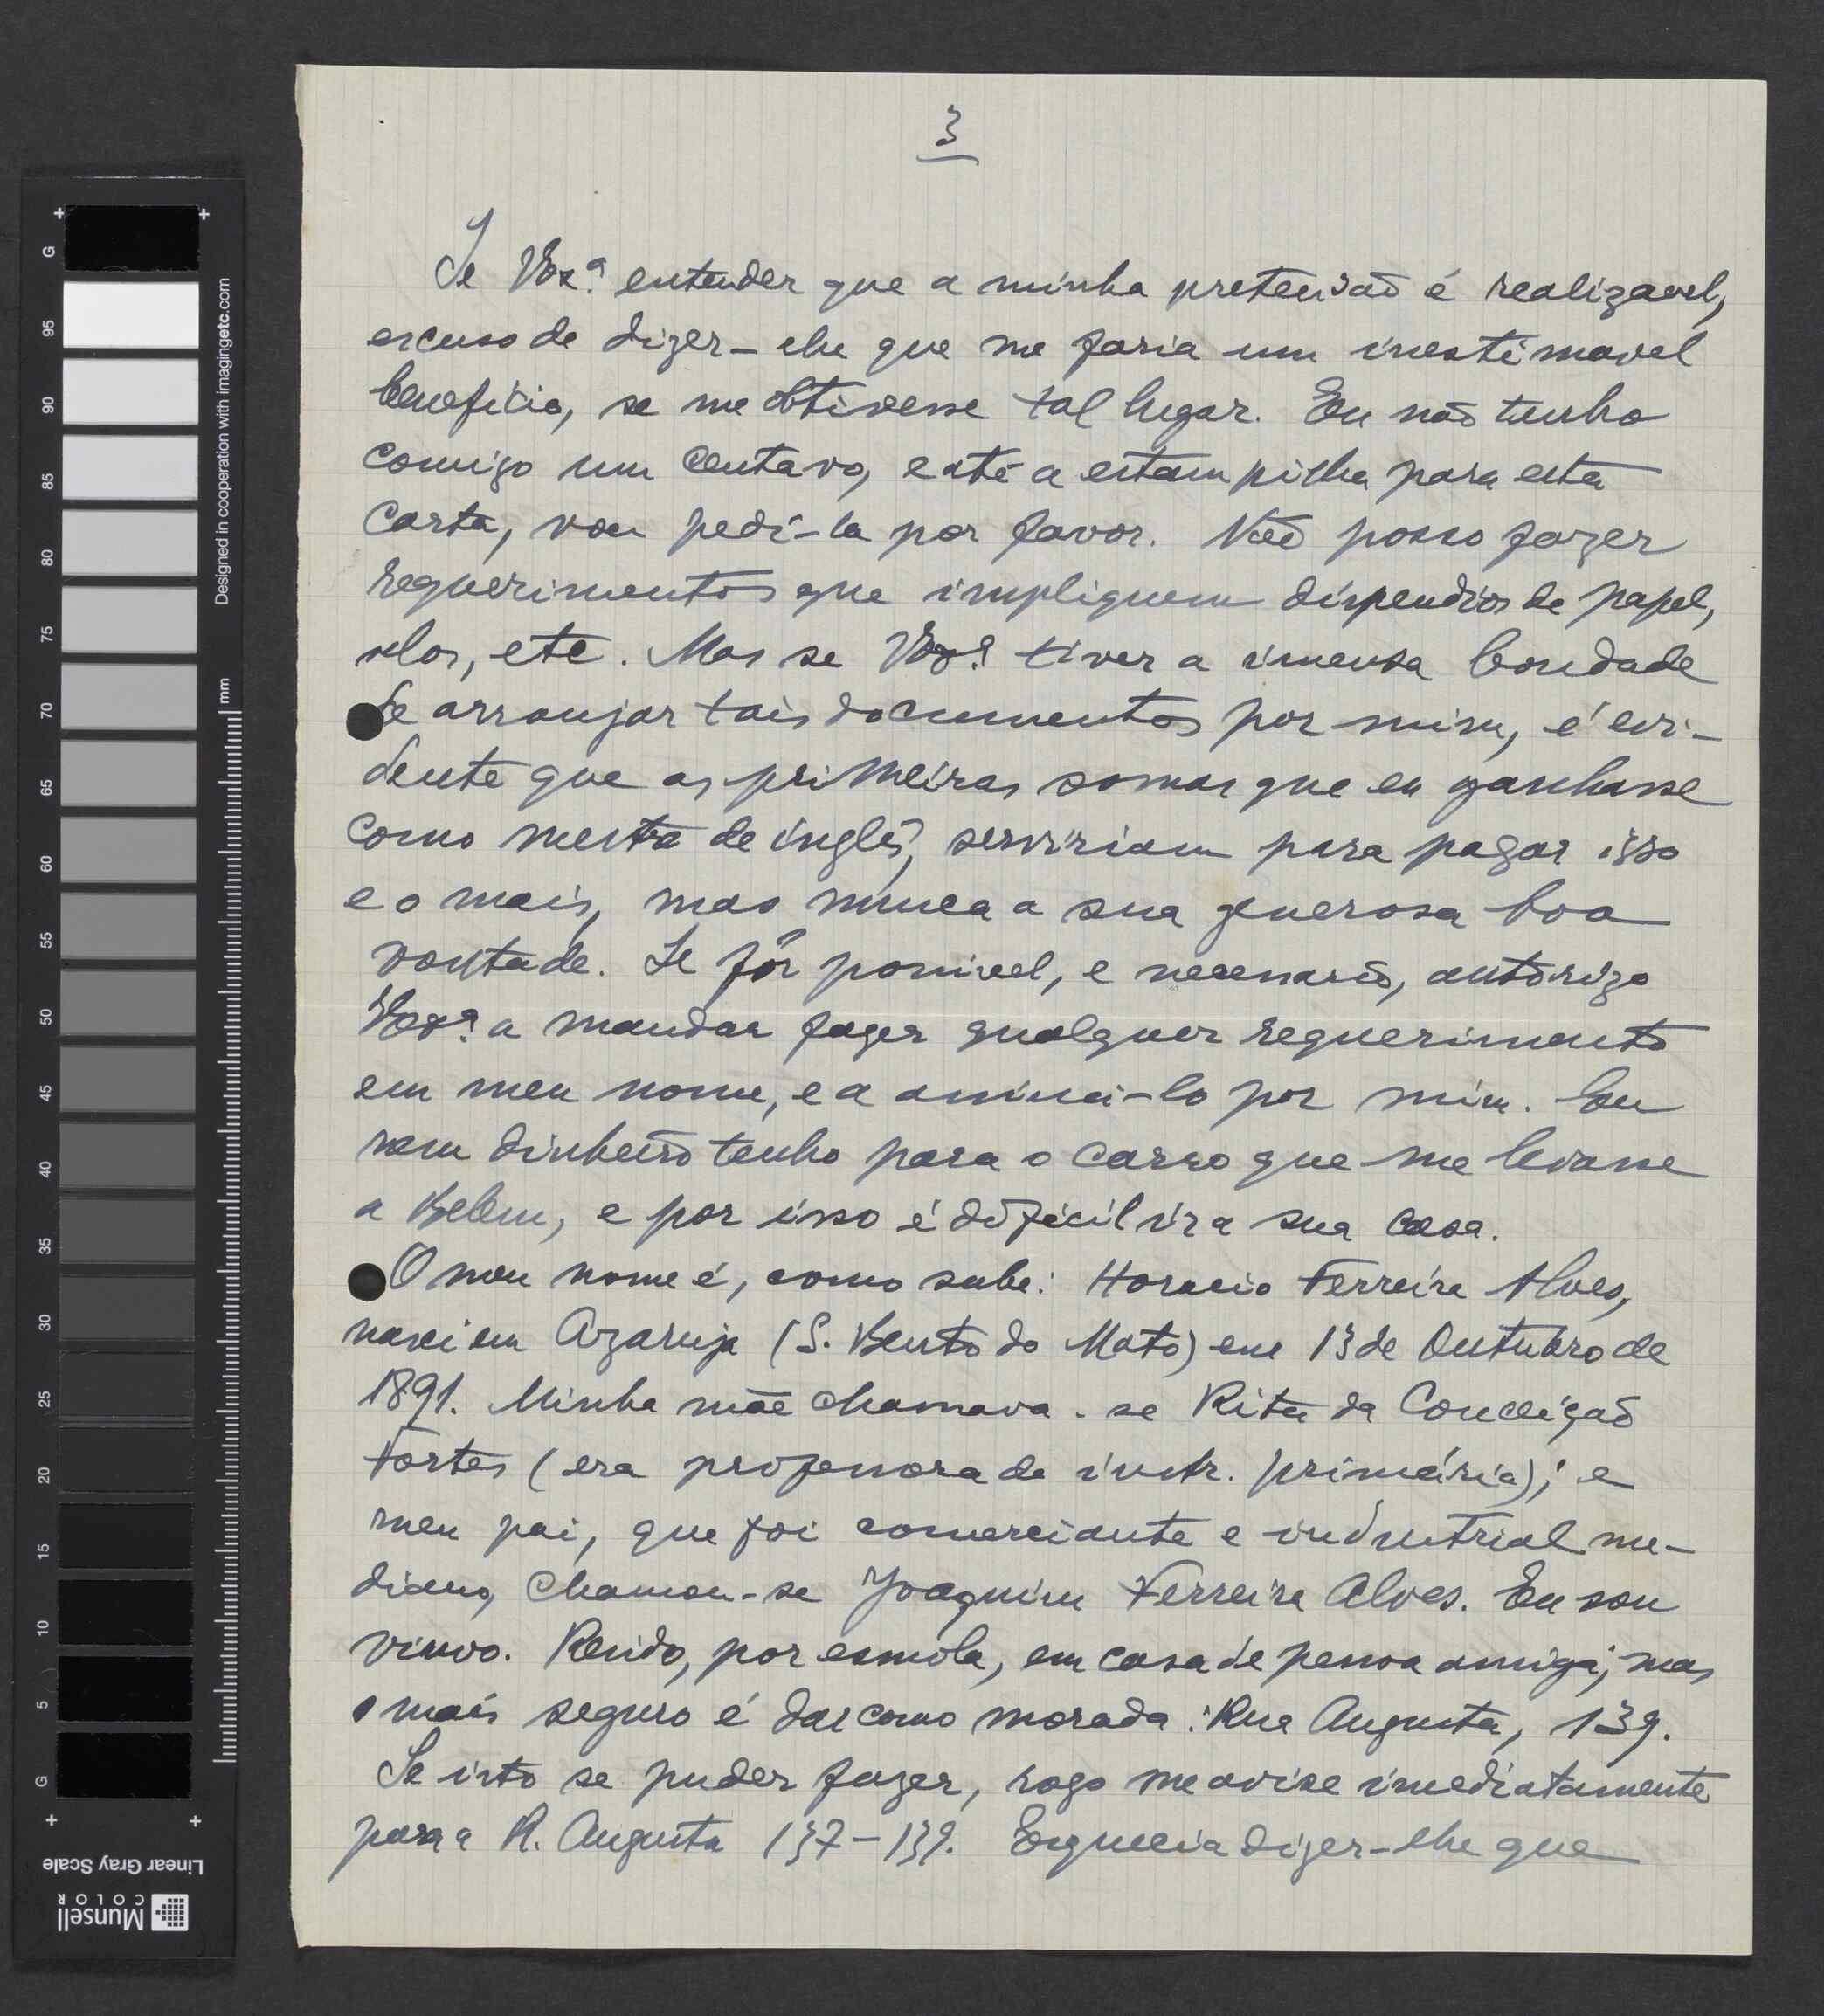 3
Se VExª entender que a minha pretensaõ é realizavel,
escuso de dizer-lhe que me faria um inestimavel
beneficio, se me obtivesse tal lugar. Eu naõ tenho
comigo um centavo, e até a estampilha para esta
carta, vou pedi-la por favor. Naõ posso fazer
requerimentos que impliquem dispendios de papel,
selos, etc. Mas se VExª tiver a imensa bondade
de arranjar tais documentos por mim, é evi-
dente que as primeiras somas que eu ganhasse
como mestre de inglês, serviriam para pagar isso
e o mais, mas nunca a sua generosa boa
vontade. Se fôr possivel, e necessario, autorizo
VExª a mandar fazer qualquer requerimento
em meu nome, e a assiná-lo por mim. Eu
nem dinheiro tenho para o carro que me levasse
a Belem, e por isso é dificil ir a sua casa.
O meu nome é, como sabe: Horacio Ferreira Alves,
nasci em Azaruja (S. Bento do Mato) em 13 de Outubro de
1891. Minha mãe chamava-se Rita da Conceiçaõ
Fortes (era professora de instr. primária); e
meu pai, que foi comerciante e industrial me-
diano, chamou-se Joaquim Ferreira Alves. Eu sou
viuvo. Resido, por esmola, em casa de pessoa amiga; mas
o mais seguro é dar como morada: Rua Augusta, 139.
Se isto se puder fazer, rogo me avise imediatamente
para a R. Augusta 137-139. Esquecia dizer-lhe que
G
95
90
85
80
75
70
65
60
55
50
45
40
35
30
25
20
15
10
5
G
mm
Designed in cooperation with imagingetc.com
Linear Gray Scale
Munsell
COLOR